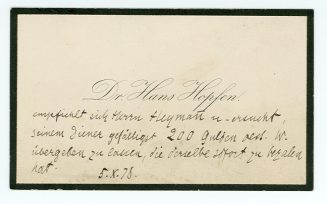 Dr. Hans Hopfen.
empfiehlt sich Herrn Heyman u. ersucht,
seinem Diener gefälligst 200 Gulden oest. W.
übergeben zu lassen, die derselbe sofort zu bezalen
hat.   5.X.78.